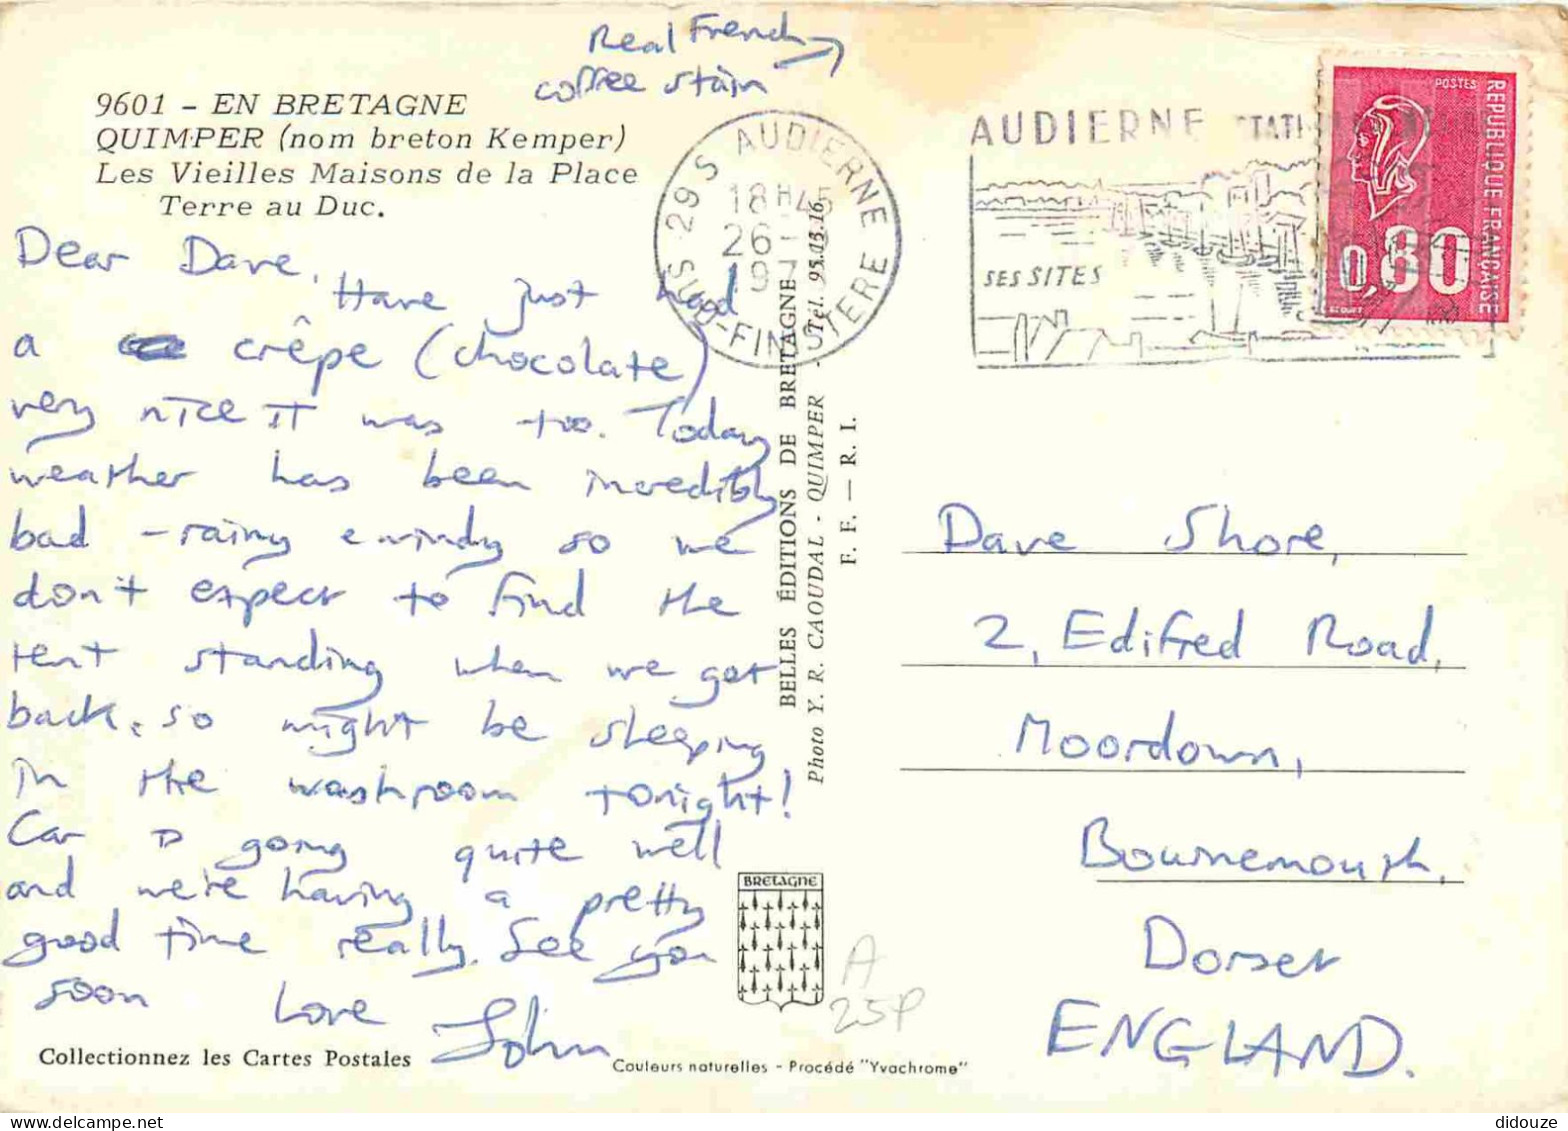 Real French
coffee stain
9601 - EN BRETAGNE
QUIMPER (nom breton Kemper)
Les Vieilles Maisons de la Place
Terre au Duc.
Dear Dave,
Have just had
a crêpe (chocolate)
very nice it was too. Today
weather has been incredibly
bad - rainy & windy so we
don't expect to find the
tent standing when we get
back. so might be sleeping
in the washroom tonight!
Car is going quite well
and we're having a pretty
good time really. See you
soon Love
John
Collectionnez les Cartes Postales
Couleurs naturelles - Procédé "Yvachrome"
BELLES ÉDITIONS DE BRETAGNE
Photo Y. R. CAOUDAL - QUIMPER - Tél. 95.15.16
F. F. — R. I.
BRETAGNE
A
25P
29 S AUDIERNE
18H45
26 -
197
SUD-FINISTERE
AUDIERNE
SES SITES
POSTES
REPUBLIQUE FRANÇAISE
0,80
Dave Shore,
2, Edifred Road,
Moordown,
Bournemouth,
Dorset
ENGLAND.
didouze